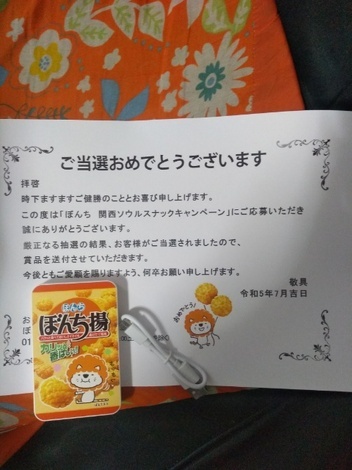 ご当選おめでとうございます
拝啓
時下ますますご健勝のこととお喜び申し上げます。
この度は「ぼんち 関西ソウルスナックキャンペーン」にご応募いただき
誠にありがとうございます。
厳正なる抽選の結果、お客様がご当選されましたので、
賞品を送付させていただきます。
今後ともご愛顧を賜りますよう、何卒お願い申し上げます。
敬具
令和5年7月吉日
おめでとう!
お
ぼ
01
ぼんち
ぼんち揚